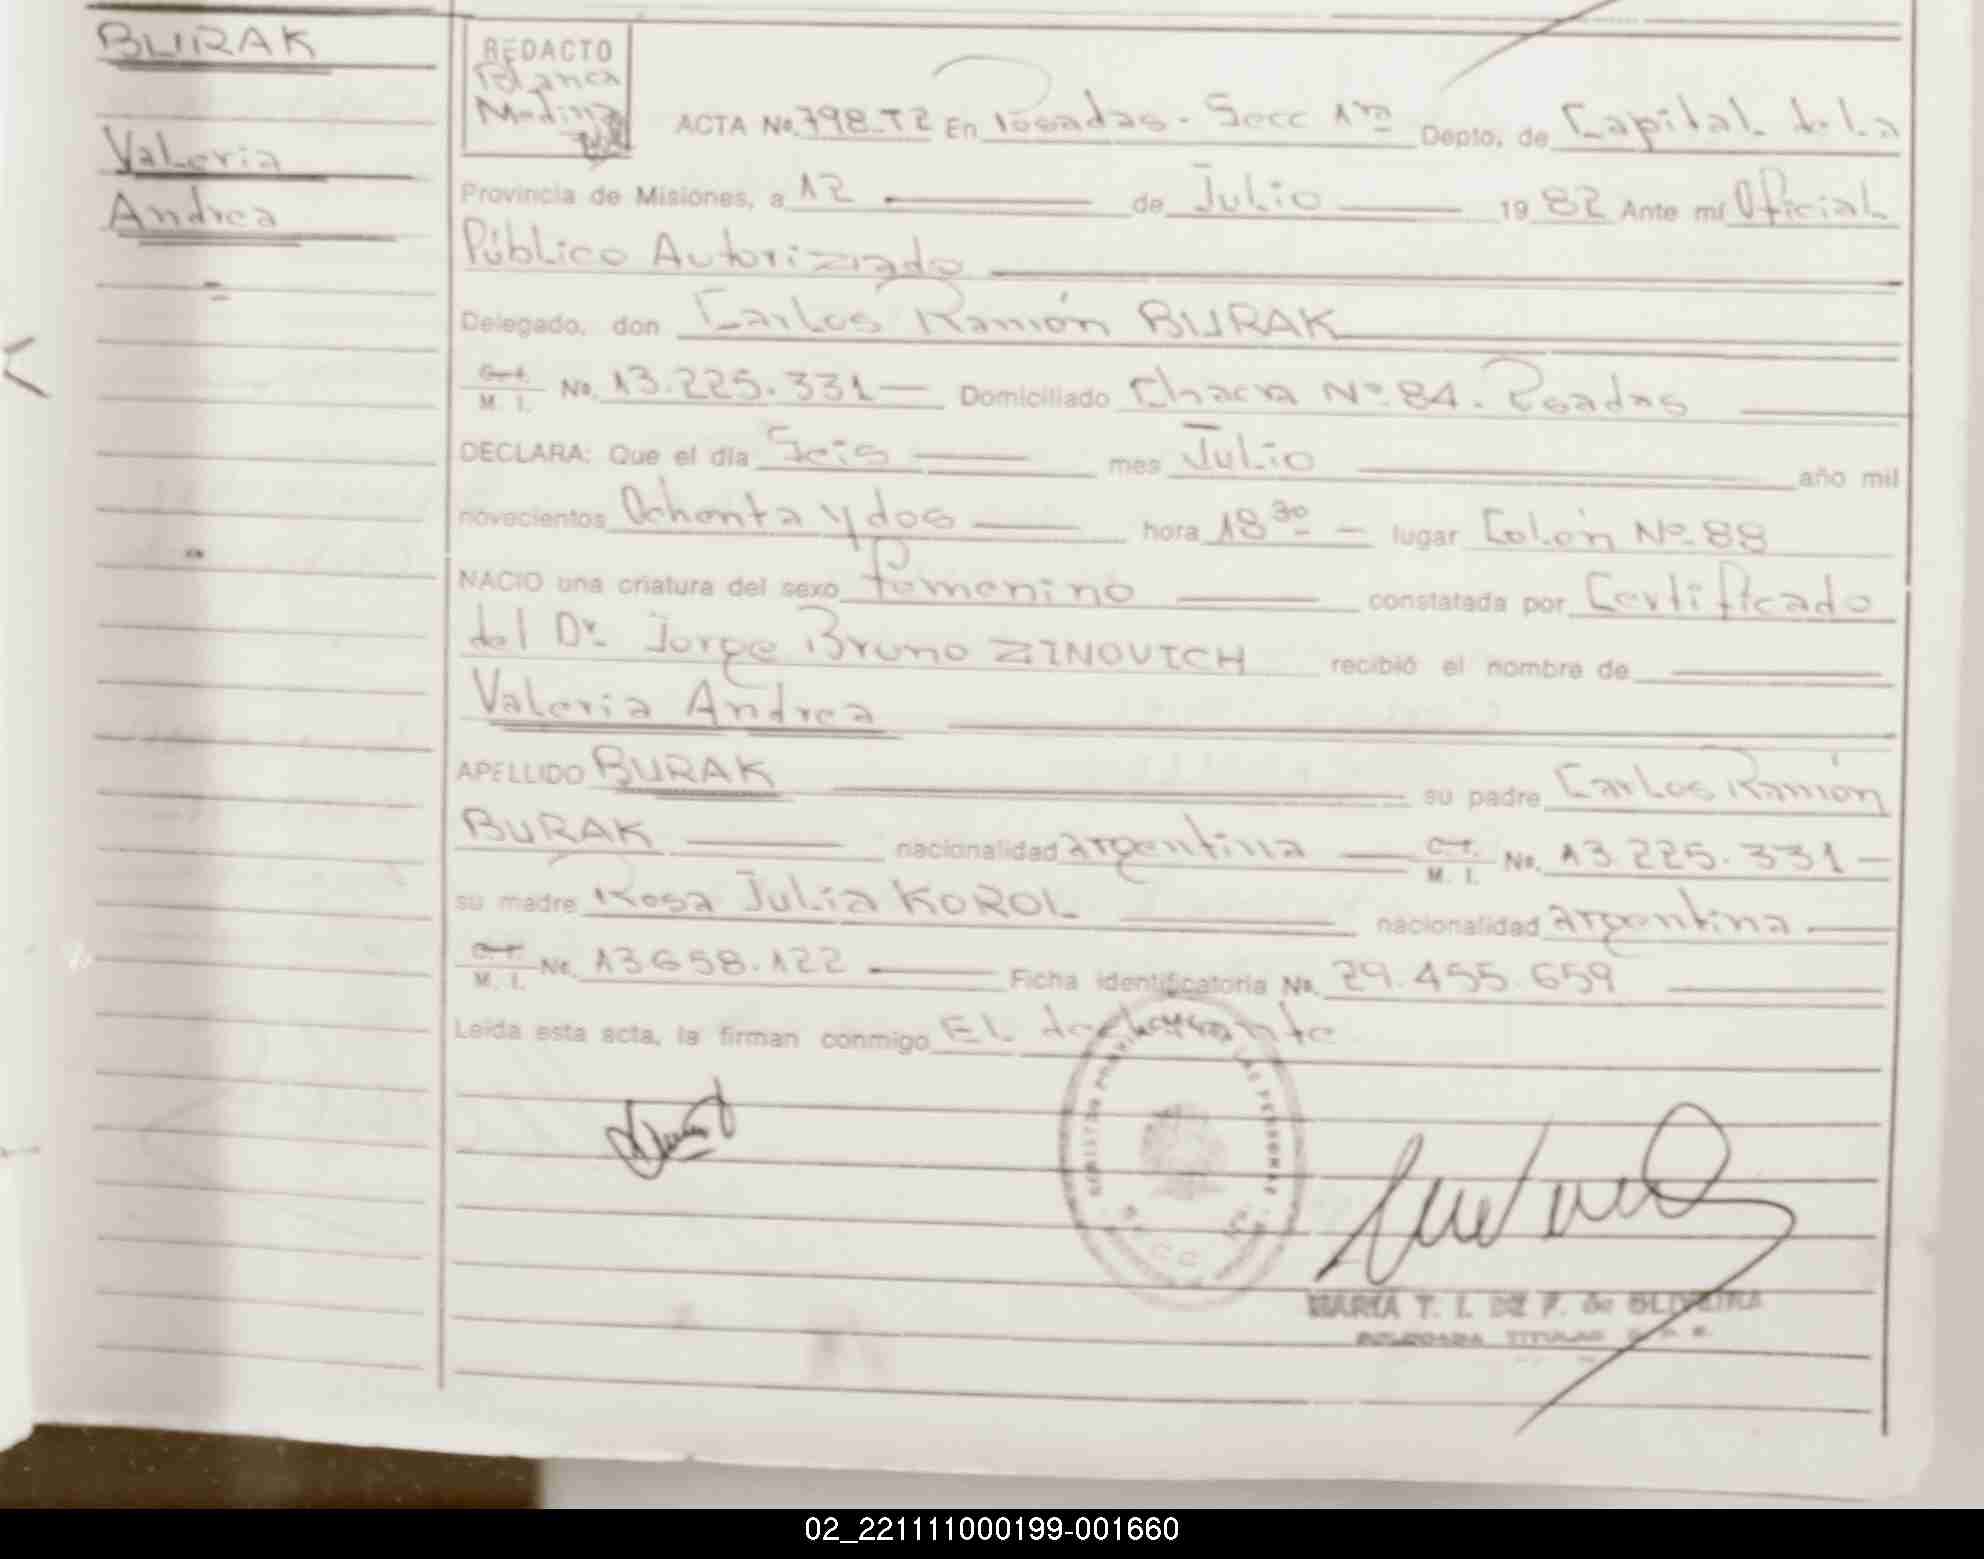 BURAK
Valeria
Andrea
REDACTO
Blanca
Medina
ACTA No. 798-T2 En Posadas - Secc 1ra Depto, de Capital de la
Provincia de Misiones, a 12 de Julio 1982 Ante mí Oficial
Público Autorizado
Delegado, don Carlos Ramón BURAK
C. I.
M. I. No. 13.225.331 — Domiciliado Chacra Nº 84. Posadas
DECLARA: Que el día Seis mes Julio año mil
novecientos Ochenta y dos hora 18 30 — lugar Colón Nº 88
NACIO una criatura del sexo femenino constatada por Certificado
del Dr. Jorge Bruno ZINOVICH recibió el nombre de
Valeria Andrea
APELLIDO BURAK su padre Carlos Ramón
BURAK nacionalidad argentina — C. I.
M. I. No. 13.225.331 —
su madre Rosa Julia KOROL nacionalidad argentina.
C. I.
M. I. No. 13658.122 Ficha identificatoria No. 29.455.659
Leída esta acta, la firman conmigo EL declarante
MARIA T. I. DE F. de OLIVEIRA
TITULAR
02_221111000199-001660